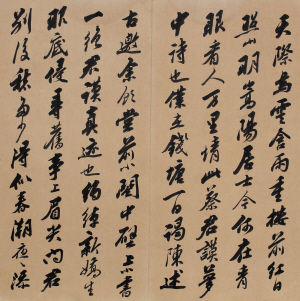 天際烏雲含雨重樓前紅日
照山明嵩陽居士今何在青
眼看人萬里情此蔡君謨夢
中詩也僕在錢塘一日謁陳述
古邀余飲堂前小閣中壁上小書
一絕君謨真迹也約綽新嬌生
眼底侵尋舊事上眉尖問君
別後愁多少得似春潮夜添